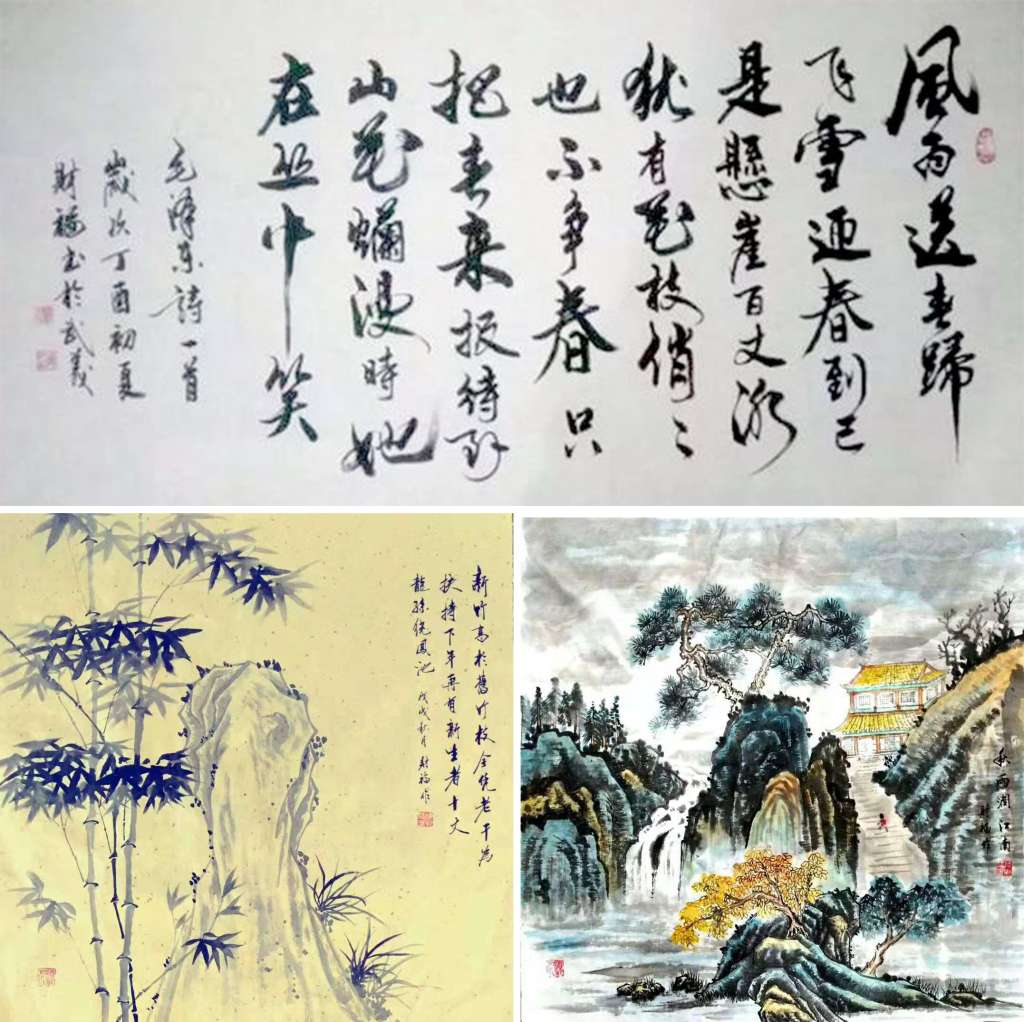 風雨送春歸
飞雪迎春到已
是懸崖百丈冰
犹有花枝俏〻
也不争春只
把春来报待到
山花爛漫時她
在丛中笑
毛澤东詩一首
歲次丁酉初夏
財福书於武義
新竹高於舊竹枝全凭老干為
扶持下年再有新生者十丈
龍孫繞鳳池 戊戌秋月 財福作
秋雨潤江南
財福作